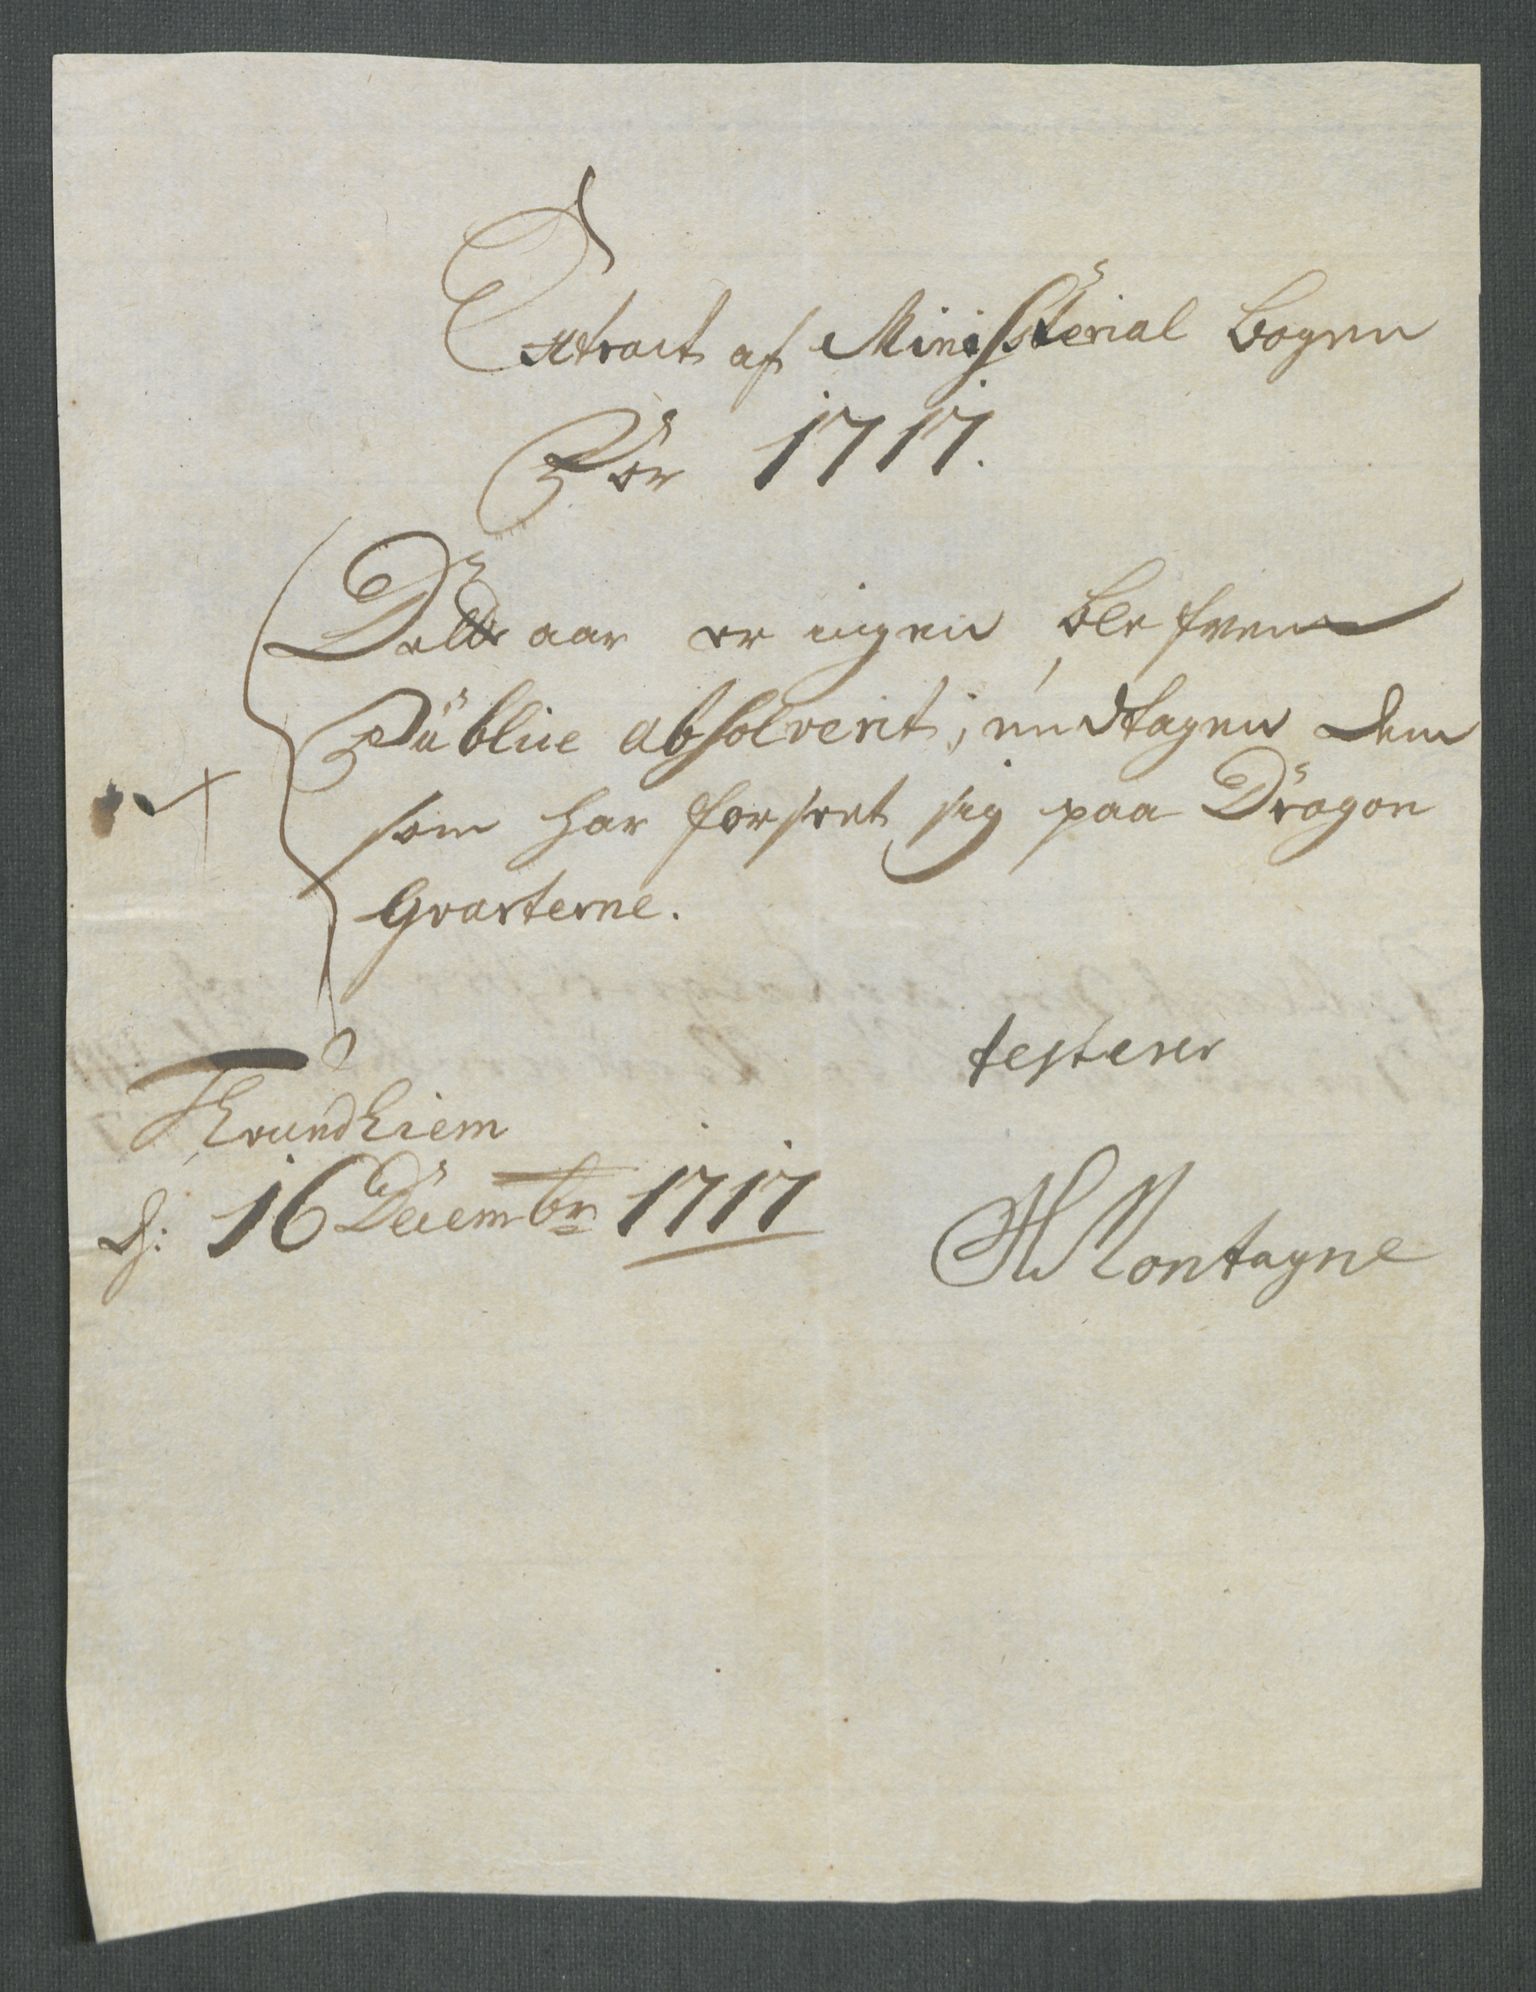 Extract af Ministerial bogen
For 1717.
Dette aar er ingen blefven
Publice absolverit, undtagen dem
som har forseet sig paa Dragon
Gvarterne.
testerer
Trundhiem
d: 16 Decembr 1717
H Montagne